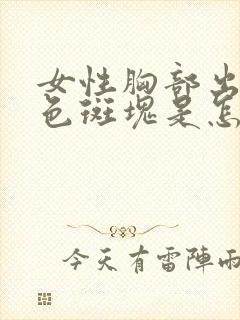 女性胸部出
色斑塊是怎
今天有雷陣雨